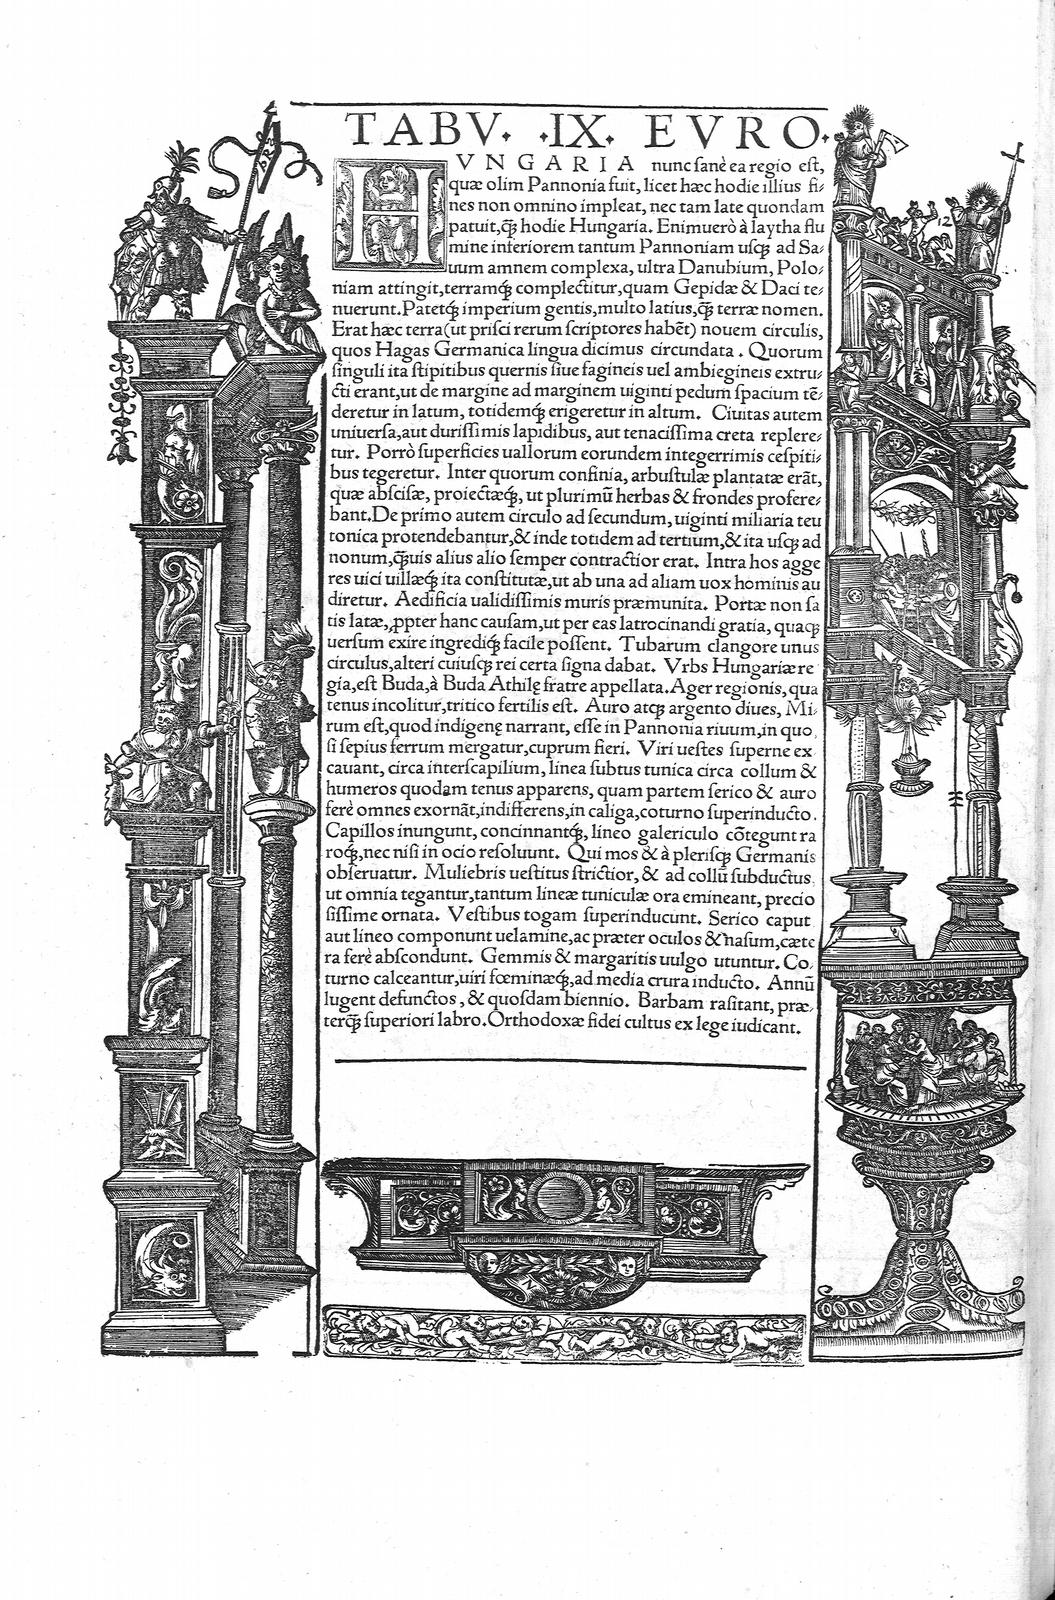 TABV. .IX. EVRO.
HVNGARIA nunc sanè ea regio est,
quæ olim Pannonia fuit, licet hæc hodie illius fi⸗
nes non omnino impleat, nec tam late quondam
patuit,q̃ȝ hodie Hungaria. Enimuerò à laytha flu
mine inferiorem tantum Pannoniam usq; ad Sa⸗
uum amnem complexa, ultra Danubium, Polo⸗
niam attingit,terramq́; complectitur,quam Gepidæ & Daci te⸗
nuerunt.Patetq́; imperium gentis,multo latius,q̃ȝ terræ nomen.
Erat hæc terra(ut prisci rerum scriptores habẽt) nouem circulis,
quos Hagas Germanica lingua dicimus circundata . Quorum
singuli ita stipitibus quernis siue fagineis uel ambiegineis extru⸗
cti erant,ut de margine ad marginem uiginti pedum spacium tẽ⸗
deretur in latum, totidemq́; erigeretur in altum. Ciuitas autem
uniuersa,aut durissimis lapidibus, aut tenacissima creta replere⸗
tur. Porrò superficies uallorum eorundem integerrimis cespiti⸗
bus tegeretur. Inter quorum confinia, arbustulæ plantatæ erãt,
quæ abscisæ, proiectæq́;, ut plurimũ herbas & frondes profere⸗
bant.De primo autem circulo ad secundum,uiginti miliaria teu
tonica protendebantur,& inde totidem ad tertium,& ita usq; ad
nonum,q̃ȝuis alius alio semper contractior erat. Intra hos agge
res uici uillæq́; ita constitutæ,ut ab una ad aliam uox hominis au
diretur. Aedificia ualidissimis muris præmunita. Portæ non sa
tis latæ,ꝓpter hanc causam,ut per eas latrocinandi gratia, quaq;
uersum exire ingrediq́; facile possent. Tubarum clangore unus
circulus,alteri cuiusq; rei certa signa dabat. Vrbs Hungariæ re
gia,est Buda,à Buda Athilę fratre appellata.Ager regionis, qua
tenus incolitur,tritico fertilis est. Auro atq; argento diues, Mi⸗
rum est,quod indigenę narrant, esse in Pannonia riuum,in quo
si sepius ferrum mergatur,cuprum fieri. Viri uestes superne ex
cauant, circa interscapilium, linea subtus tunica circa collum &
humeros quodam tenus apparens, quam partem serico & auro
ferè omnes exornãt,indifferens,in caliga,coturno superinducto.
Capillos inungunt, concinnantq́;, lineo galericulo cõtegunt ra
roq́;,nec nisi in ocio resoluunt. Qui mos & à plerisq; Germanis
obseruatur. Muliebris uestitus strictior, & ad collũ subductus,
ut omnia tegantur,tantum lineæ tuniculæ ora emineant, precio
sissime ornata. Vestibus togam superinducunt. Serico caput
aut lineo componunt uelamine,ac præter oculos & nasum,cæte
ra ferè abscondunt. Gemmis & margaritis uulgo utuntur. Co⸗
turno calceantur,uiri fœminæq́;,ad media crura inducto. Annũ
lugent defunctos, & quosdam biennio. Barbam rasitant, præ⸗
terq̃ȝ superiori labro.Orthodoxæ fidei cultus ex lege iudicant.
12